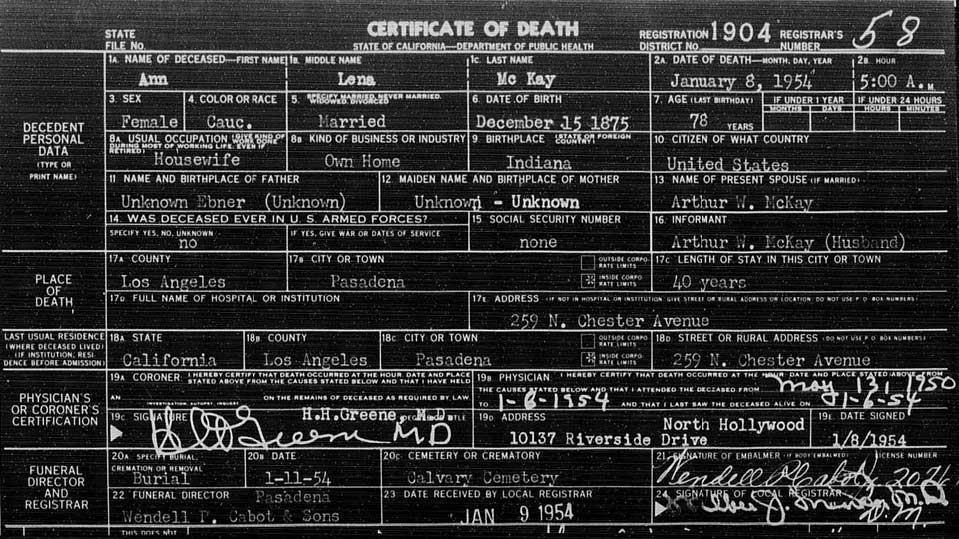 CERTIFICATE OF DEATH
STATE FILE No.
STATE OF CALIFORNIA—DEPARTMENT OF PUBLIC HEALTH
REGISTRATION DISTRICT No. 1904 REGISTRAR'S NUMBER 58
DECEDENT PERSONAL DATA (TYPE OR PRINT NAME)
1A. NAME OF DECEASED—FIRST NAME 1B. MIDDLE NAME 1C. LAST NAME 2A. DATE OF DEATH—MONTH, DAY, YEAR 2B. HOUR
Ann Lena Mc Kay January 8, 1954 5:00 A.M.
3. SEX 4. COLOR OR RACE 5. SPECIFY MARRIED, NEVER MARRIED, WIDOWED, DIVORCED 6. DATE OF BIRTH 7. AGE (LAST BIRTHDAY) IF UNDER 1 YEAR MONTHS DAYS IF UNDER 24 HOURS HOURS MINUTES
Female Cauc. Married December 15 1875 78 YEARS
8A. USUAL OCCUPATION (GIVE KIND OF WORK DONE DURING MOST OF WORKING LIFE, EVEN IF RETIRED) 8B. KIND OF BUSINESS OR INDUSTRY 9. BIRTHPLACE (STATE OR FOREIGN COUNTRY) 10. CITIZEN OF WHAT COUNTRY
Housewife Own Home Indiana United States
11 NAME AND BIRTHPLACE OF FATHER 12. MAIDEN NAME AND BIRTHPLACE OF MOTHER 13. NAME OF PRESENT SPOUSE (IF MARRIED)
Unknown Ebner (Unknown) Unknown - Unknown Arthur W. McKay
14. WAS DECEASED EVER IN U. S. ARMED FORCES? 15. SOCIAL SECURITY NUMBER 16. INFORMANT
SPECIFY YES, NO, UNKNOWN IF YES, GIVE WAR OR DATES OF SERVICE
no none Arthur W. McKay (Husband)
PLACE OF DEATH
17A. COUNTY 17B. CITY OR TOWN OUTSIDE CORPORATE LIMITS INSIDE CORPORATE LIMITS 17C. LENGTH OF STAY IN THIS CITY OR TOWN
Los Angeles Pasadena 40 years
17D. FULL NAME OF HOSPITAL OR INSTITUTION 17E. ADDRESS (IF NOT IN HOSPITAL OR INSTITUTION, GIVE STREET OR RURAL ADDRESS OR LOCATION. DO NOT USE P. O. BOX NUMBERS)
259 N. Chester Avenue
LAST USUAL RESIDENCE (WHERE DECEASED LIVED) (IF INSTITUTION, RESIDENCE BEFORE ADMISSION)
18A. STATE 18B. COUNTY 18C. CITY OR TOWN OUTSIDE CORPORATE LIMITS INSIDE CORPORATE LIMITS 18D STREET OR RURAL ADDRESS (DO NOT USE P. O. BOX NUMBERS)
California Los Angeles Pasadena 259 N. Chester Avenue
PHYSICIAN'S OR CORONER'S CERTIFICATION
19A. CORONER I HEREBY CERTIFY THAT DEATH OCCURRED AT THE HOUR, DATE AND PLACE STATED ABOVE FROM THE CAUSES STATED BELOW AND THAT I HAVE HELD AN ON THE REMAINS OF DECEASED AS REQUIRED BY LAW.
INVESTIGATION, AUTOPSY, INQUEST
19B. PHYSICIAN I HEREBY CERTIFY THAT DEATH OCCURRED AT THE HOUR, DATE AND PLACE STATED ABOVE, FROM THE CAUSES STATED BELOW AND THAT I ATTENDED THE DECEASED FROM May 13, 1950
TO 1-6-1954 AND THAT I LAST SAW THE DECEASED ALIVE ON 1-6-54
19C. SIGNATURE H.H.Greene, M.D. 19D. ADDRESS North Hollywood 19E. DATE SIGNED
H H Greene MD 10137 Riverside Drive 1/8/1954
FUNERAL DIRECTOR AND REGISTRAR
20A. SPECIFY BURIAL, CREMATION OR REMOVAL 20B. DATE 20C. CEMETERY OR CREMATORY 21. SIGNATURE OF EMBALMER (IF BODY EMBALMED) LICENSE NUMBER
Burial 1-11-54 Calvary Cemetery Wendell P. Cabot
22 FUNERAL DIRECTOR Pasadena 23 DATE RECEIVED BY LOCAL REGISTRAR 24. SIGNATURE OF LOCAL REGISTRAR
Wendell P. Cabot & Sons JAN 9 1954 M.D.
THIS DOES NOT